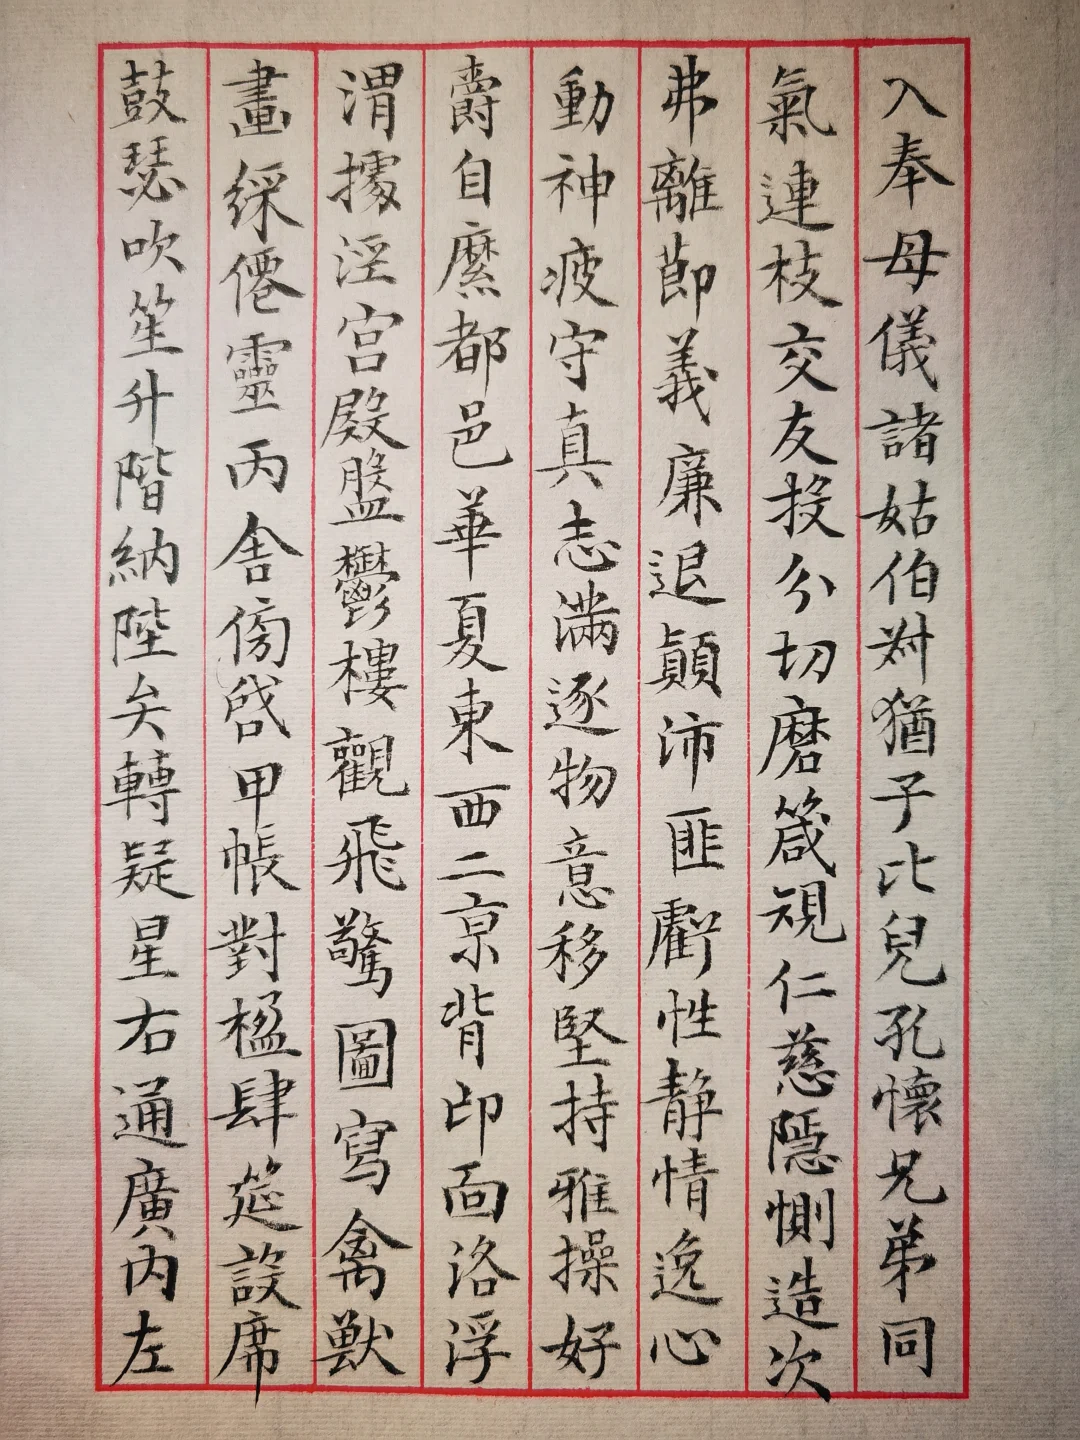 入奉母儀諸姑伯叔猶子比兒孔懷兄弟同
氣連枝交友投分切磨箴規仁慈隱惻造次
弗離節義廉退顛沛匪虧性静情逸心
動神疲守真志滿逐物意移堅持雅操好
爵自縻都邑華夏東西二京背邙面洛浮
渭據涇宮殿盤鬱樓觀飛驚圖寫禽獸
畫綵僊靈丙舍傍啓甲帳對楹肆筵設席
鼓瑟吹笙升階納陛弁轉疑星右通廣内左